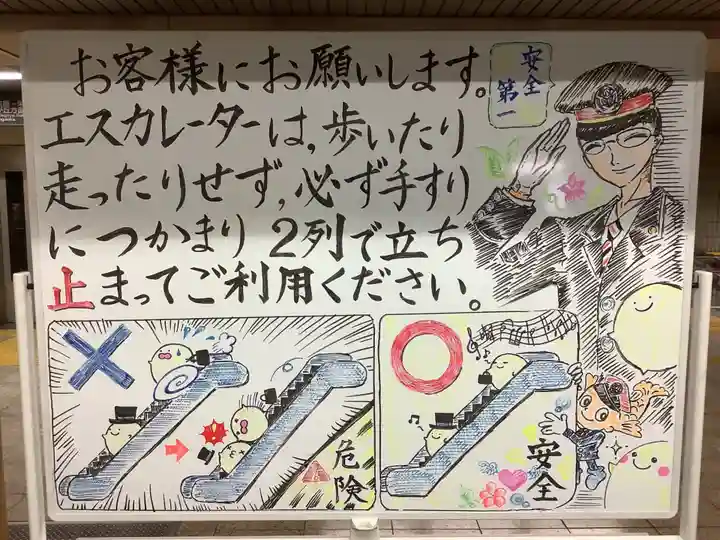 お客様にお願いします。
エスカレーターは,歩いたり
走ったりせず,必ず手すり
につかまり2列で立ち
止まってご利用ください。
安全
第一
危険
安全